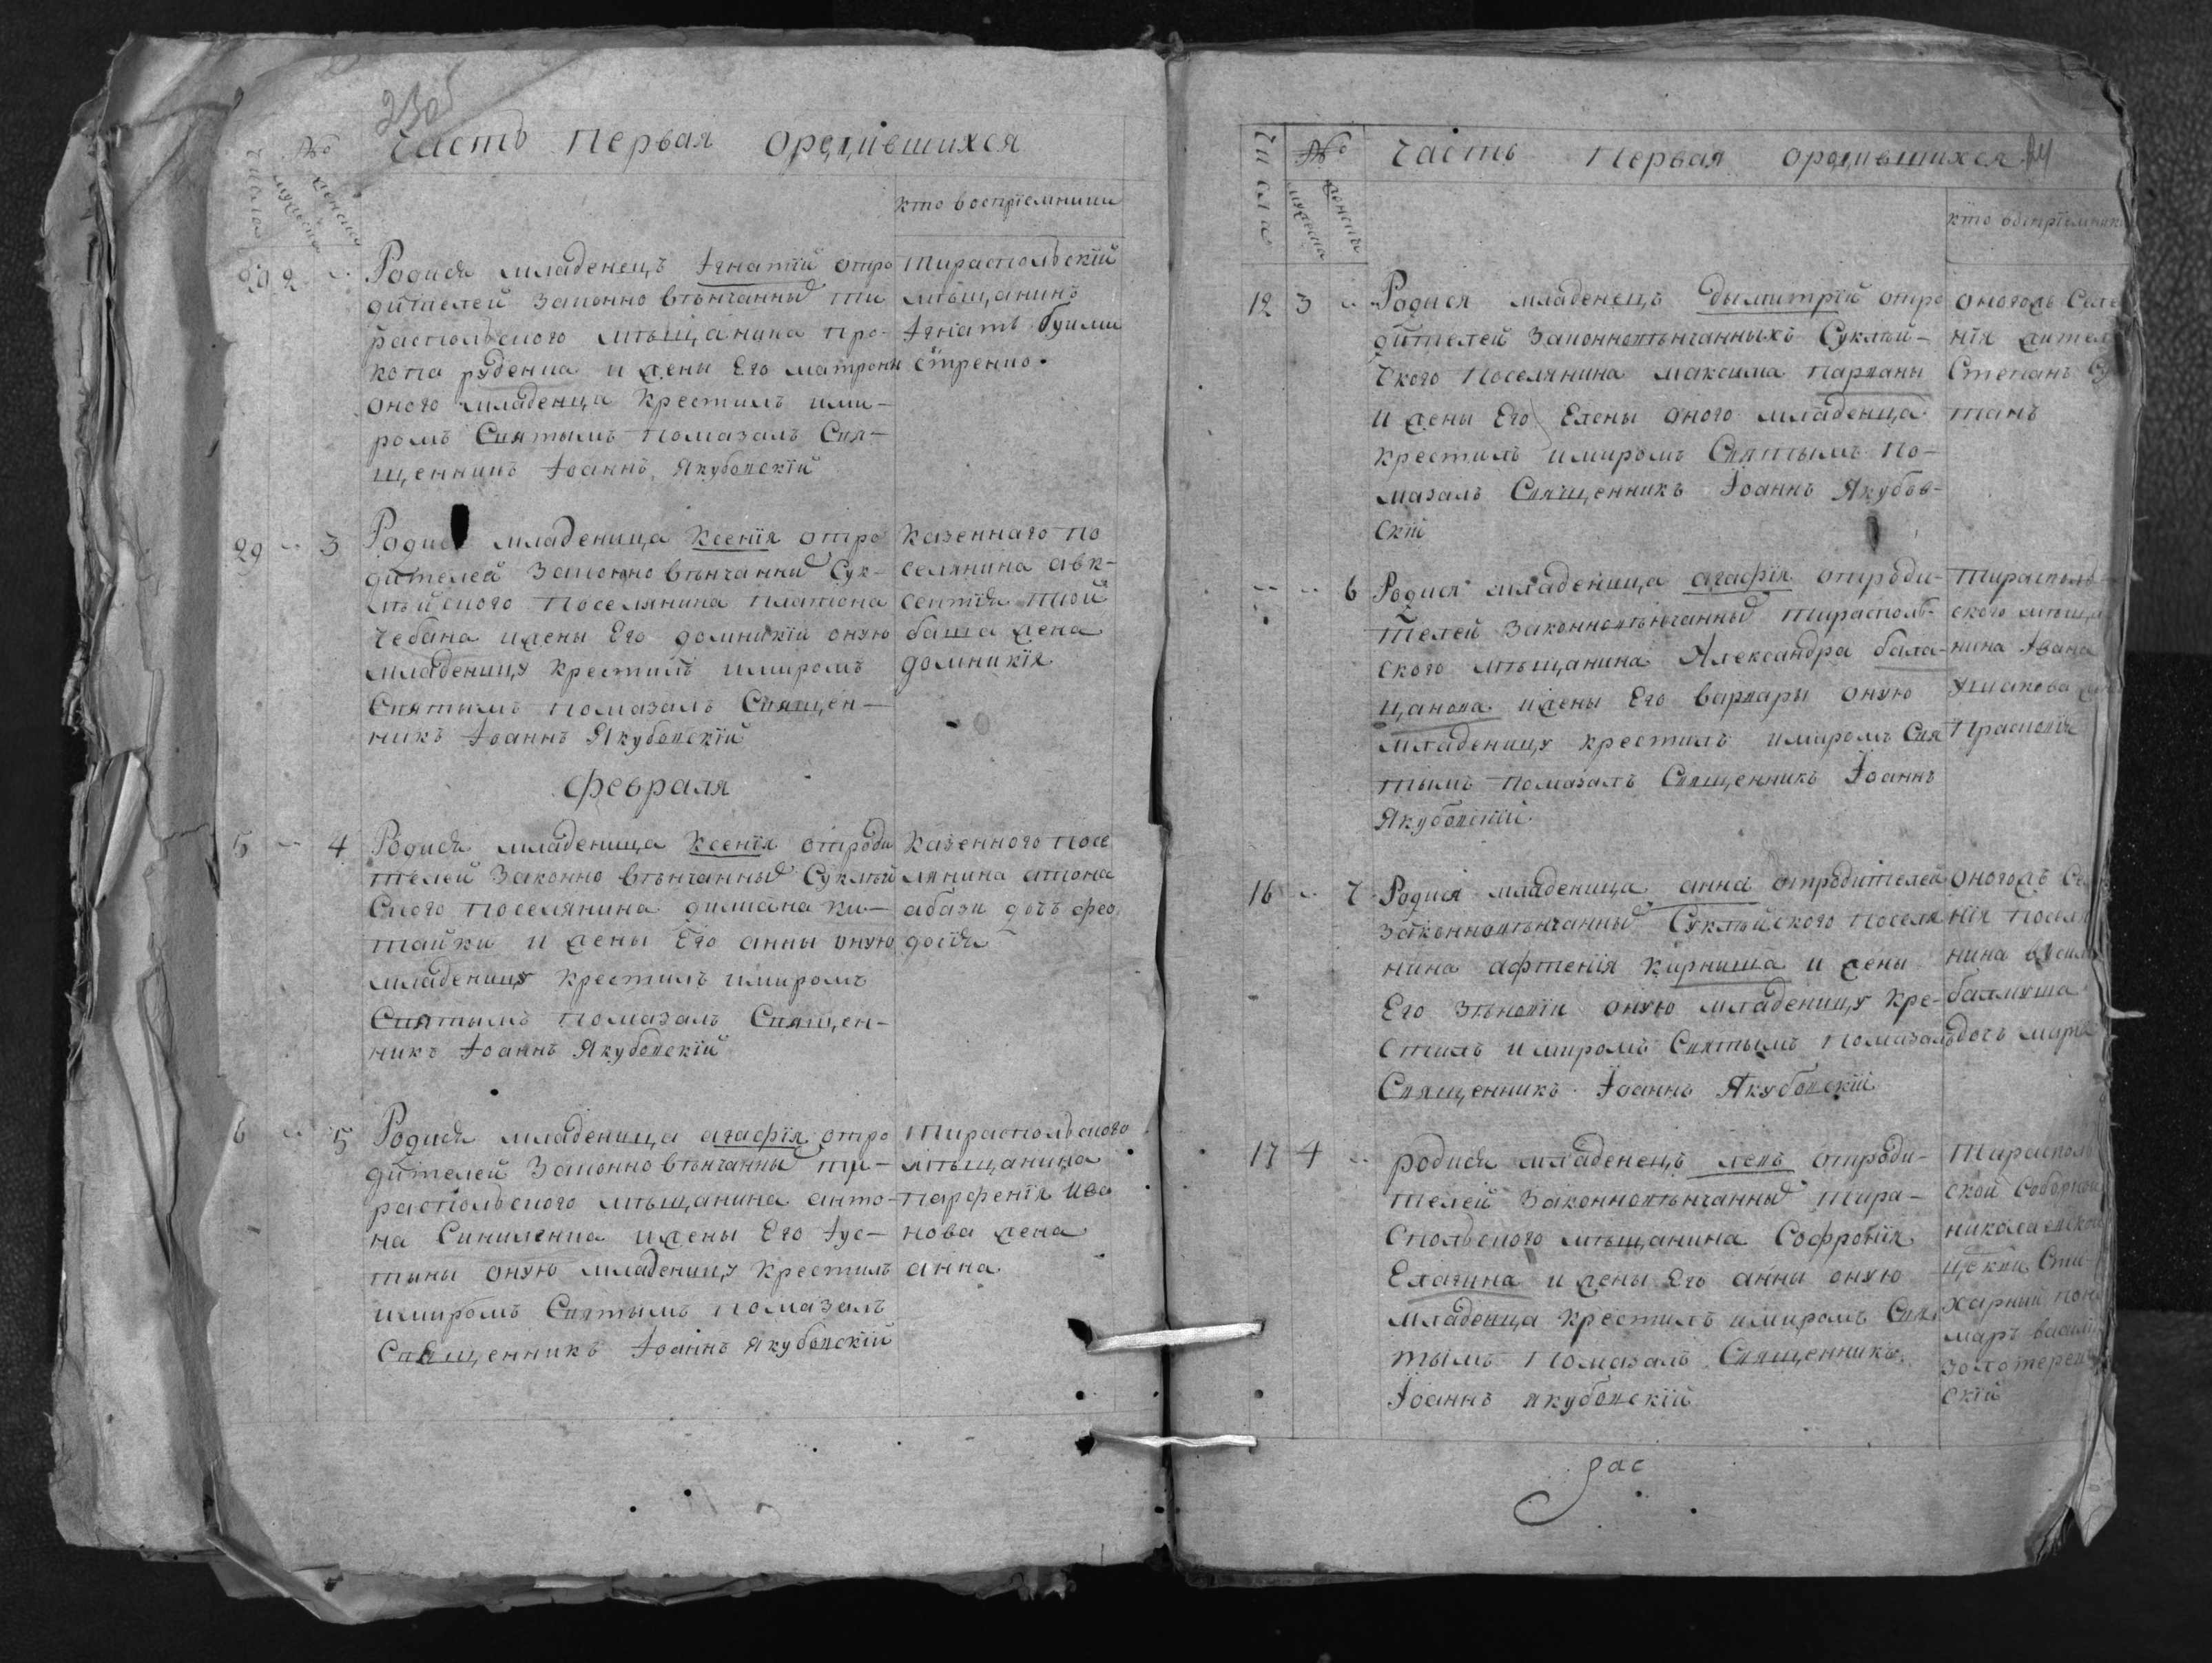 230б
Часть Первая ородившихся
Числа
№
мужеска
женска
кто восприемники
29 2 Родися младенецъ Iгнатiй отро
дителей законно вѣнчанныхъ ти
распольского мѣщанина про-
копа руденка и жены Его матроны
оного младенца крестилъ ими-
ромъ Святымъ помазалъ Свя-
щенникъ Iоаннъ Якубовскiй
Тираспольскiй
мѣщанинъ
Iгнатъ
29 3 Родися младеница Ксенiя отро
дителей законно вѣнчанныхъ Сук-
лѣйского Поселянина платона
чебана ижены Его домникiи оную
младеницу крестилъ имиромъ
Святымъ помазалъ Священ-
никъ Iоаннъ Якубовскiй
казеннаго по
селянина авк-
сентiя
баша жена
домникiя
февраля
5 4 Родися младеница Ксенiя отроди
телей Законно вѣнчанныхъ Суклѣй
ского поселянина дилиана ки-
тайки и жены Его анны оную
младеницу крестилъ имиромъ
Святымъ помазалъ Священ-
никъ Iоаннъ Якубовскiй
казенного посе
лянина
абази дочъ фео
досiя
6 5 Родися младеница агафiя отро
дителей Законно вѣнчанны ти-
распольского мѣщанина анто-
на Синиленка ижены Его Iус-
тины оную младеницу крестилъ
имиромъ Святымъ помазалъ
Священникъ Iоаннъ Якубовскiй
Тираспольского
мѣщанина
парфенiя ива
нова жена
анна
Числа
№
мужеска
женска
Часть Первая ородившихся
кто воспрiемники
12 3 Родися младенецъ дымитрiй отро
дителей Законновѣнчанныхъ Суклѣй-
ского Поселянина максима парканы
и жены Его Елены оного младенца
крестилъ имиромъ Святымъ По-
мазалъ Священникъ Iоаннъ Якубов-
скiй
оногожъ Селе
нiя жител
Степанъ
танъ
6 Родися младеница агафiя отроди-
телей Законновѣнчанныхъ Тирасполь-
ского мѣщанина Александра бала-
цанова ижены Его варвары оную
младеницу крестилъ имиромъ Свя
тымъ помазалъ Священникъ Iоаннъ
Якубовскiй
Тирасполь-
ского мѣща
нина Iвана
ушакова
Прасковiя
16 7 Родися младеница анна отродителей
законновѣнчанныхъ Суклѣйского поселя
нина афтенiя кирниша и жены
Его Зѣновiи оную младеницу кре-
стилъ имиромъ Святымъ помазалъ
Священникъ Iоаннъ Якубовскiй
оногожъ Се
нiя посел
нина
балмуша
дочъ марiя
17 4 родися младенецъ левъ отроди-
телей Законновѣнчанныхъ Тира-
спольского мѣщанина Софронiя
Елагина и жены Его анны оную
младенца крестилъ имиромъ Свя
тымъ помазалъ Священникъ
Iоаннъ якубовскiй
Тирасполь
ской Соборной
николаевской
церкви Сти-
харный поно
марь васил
золотерев
скiй